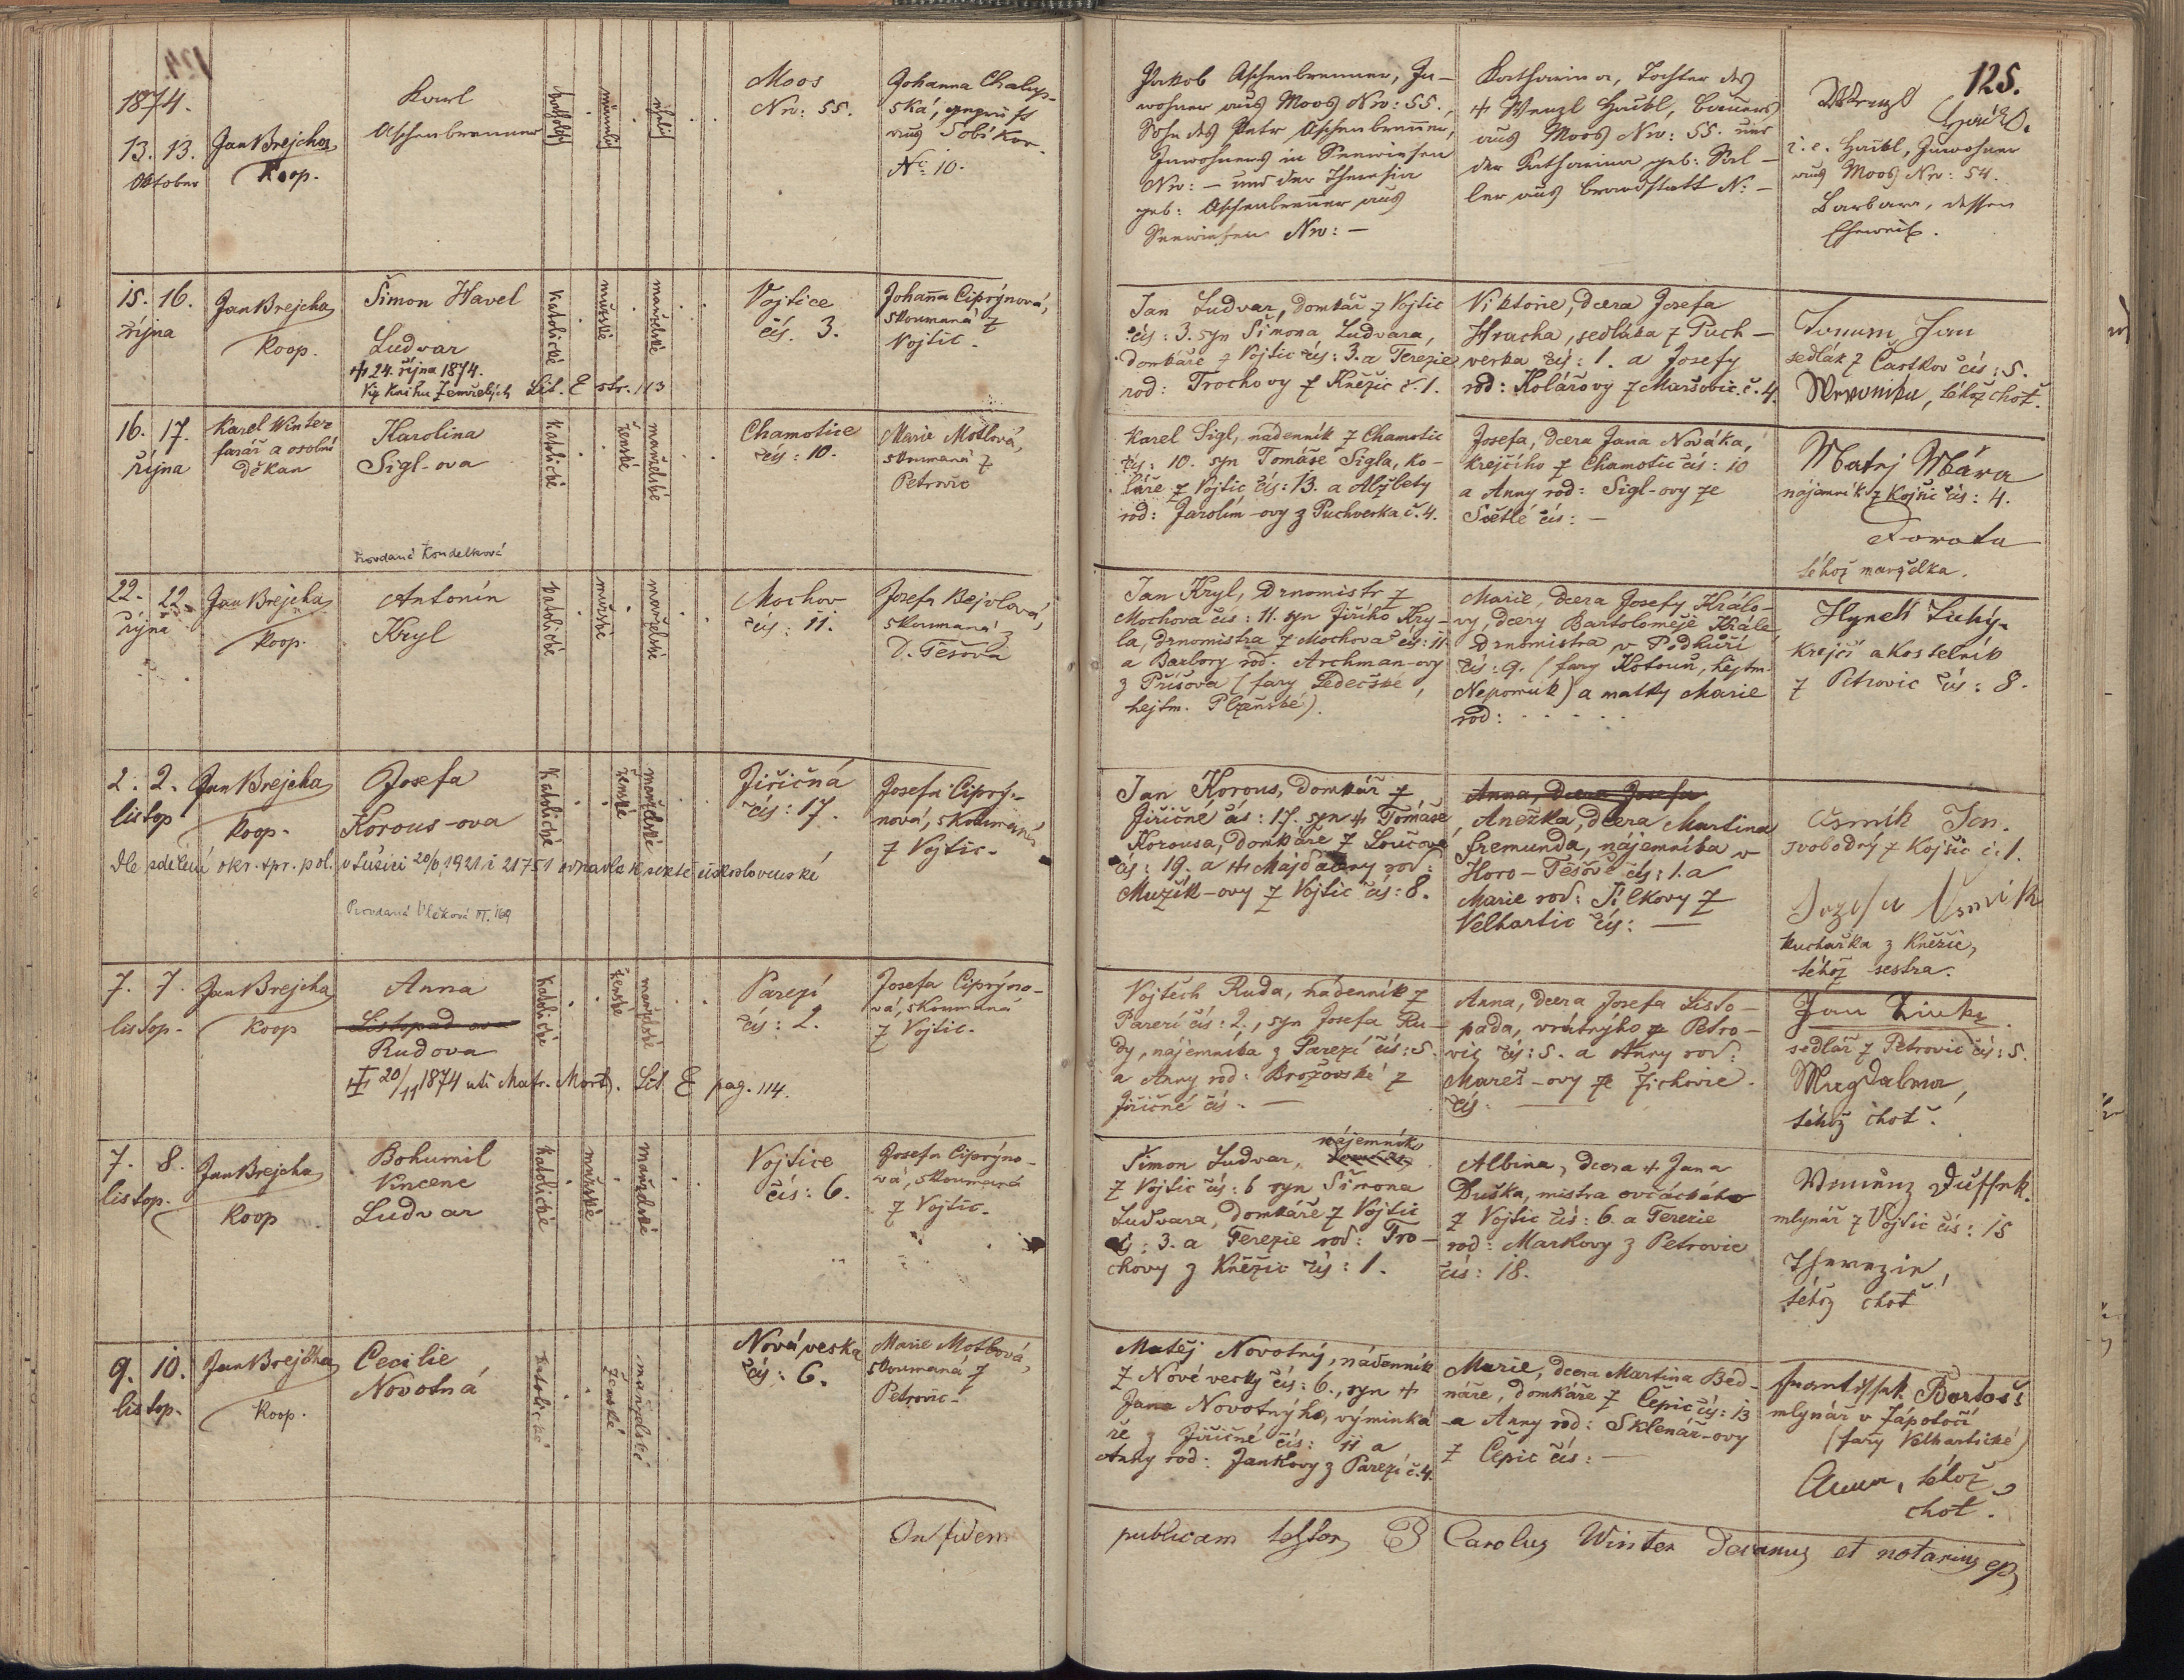 125.
1874.
13. 13.
Oktober
Jan Brejcha
Koop.
Karl
Aschenbrenner
katholisch
männlich
ehelich
Moos
Nro: 55.
Johanna Chalup-
ská, geprüft
aus Sobikor.
No. 10.
Jakob Aschenbrenner, In-
wohner aus Moos Nro: 55.,
Sohn des Petr Aschenbrenner,
Inwohners in Seewiesen
Nro: – und der Theresia
geb: Aschenbrenner aus
Seewiesen Nro: –
Katharina, Tochter des
† Wenzl Haibl, Bauers
aus Moos Nro: 55. und
der Katharina geb: Sal-
ler aus Brandstatt N: –
Wenzl
i. e. Haibl, Inwohner
aus Moos Nro: 54.
Barbara, dessen
Eheweib.
15. 16.
října
Jan Brejcha
Koop.
Šimon Havel
Ludvar
† 24. října 1874.
Viz knihu Zemřelých Lit. E str. 113
katolické
mužské
manželské
Vojtice
čís. 3.
Johanna Ciprýnová,
skoumaná z
Vojtic.
Jan Ludvar, domkář z Vojtic
čís: 3. syn Šimona Ludvara,
domkáře z Vojtic čís: 3. a Terezie
rod: Trochovy z Kněžic č. 1.
Viktorie, dcera Josefa
Hracha, sedláka z Puch-
verka čís: 1. a Josefy
rod: Kolářovy z Maršovic. č. 4.
Toman Jan
sedlák z Částkov čís: 5.
Weronika, téhož choť.
16. 17.
října
Karel Winter
farář a osobní
děkan
Karolina
Sigl-ova
Provdaná Koudelková
katolické
ženské
manželské
Chamotice
čís: 10.
Marie Motlová,
skoumaná z
Petrovic
Karel Sigl, nádenník z Chamotic
čís: 10. syn Tomáše Sigla, ko-
láře z Vojtic čís: 13. a Alžbety
rod: Jarolím-ovy z Puchverka č. 4.
Josefa, dcera Jana Nováka,
krejčího z Chamotic čís: 10
a Anny rod: Sigl-ovy ze
Světlé čís: –
Matej Mára
nájemník z Kojšic čís: 4.
Dorota
téhož manželka.
22. 22.
října
Jan Brejcha
Koop.
Antonín
Kryl
katolické
mužské
manželské
Mochov
čís: 11.
Josefa Bejvlová,
skoumaná z
D. Těšova
Jan Kryl, drnomistr z
Mochova čís: 11. syn Jiřího Kry-
la, drnomistra z Mochova čís: 11.
a Barbory rod. Archman-ovy
z Příšova (fary Ledečské,
hejtm. Plzeňské).
Marie, dcera Josefy Králo-
vy, dcery Bartoloměje Krále,
drnomistra v Podkuří
čís: 9. (fary Kotouň, hejtm.
Nepomuk) a matky Marie
rod: . . . . .
Hynek Tichý.
Krejčí a kostelník
z Petrovic čís: 8.
2. 2.
listop
Jan Brejcha
Koop.
Josefa
Korous-ova
Dle sdělení okr. spr. pol. v Sušici 20/6 1921 č 21751 odpadla k sektě československé
Provdaná Vlčková
katolické
ženské
manželské
Jiřičná
čís: 17.
Josefa Ciprý-
nová, skoumaná
z Vojtic.
Jan Korous, domkář z
Jiřičné čís: 17. syn † Tomáše
Korousa, domkáře z Loučové
čís: 19. a † Majdaleny rod:
Mužík-ovy z Vojtic čís: 8.
Anna, dcera Josefa
Anežka, dcera Martina
Fremunda, nájemníka v
Horo-Těšově čís: 1. a
Marie rod: Jílkovy z
Velhartic čís: –
Čsrník Jan.
svobodný z Kojšic č. 1.
Kuchařka z Kněžic,
téhož sestra.
7. 7.
listop.
Jan Brejcha
Koop
Anna
Listopad-ova
Rudova
† 20/11 1874 uti Matr. Mort. Lit E pag. 114.
katolické
ženské
manželské
Parezí
čís: 2.
Josefa Ciprýno-
vá, skoumaná
z Vojtic.
Vojtěch Ruda, nádenník z
Parezí čís: 2., syn Josefa Ru-
dy, nájemníka z Parezí čís: 5.
a Anny rod: Brožovské z
Jiřičné čís. –
Anna, dcera Josefa Listo-
pada, vrátnýho z Petro-
vic čís: 5. a Anny rod:
Mareš-ovy ze Žichovic.
čís. –
Jan
sedlář z Petrovic čís: 5.
Magdalena,
téhož choť.
7. 8.
listop.
Jan Brejcha
Koop
Bohumil
Vincenc
Ludvar
katolické
mužské
manželské
Vojtice
čís: 6.
Josefa Ciprýno-
vá, skoumaná
z Vojtic.
nájemník
Šimon Ludvar,
z Vojtic čís: 6 syn Šimona
Ludvara, domkáře z Vojtic
čís: 3. a Terezie rod: Tro-
chovy z Kněžic čís: 1.
Albina, dcera † Jana
Duška, mistra ovčáckého
z Vojtic čís: 6. a Terezie
rod: Markovy z Petrovic
čís: 18.
Wincenz Duffek.
mlynář z Vojtic čís: 15
Therezie,
téhož choť
9. 10.
listop.
Jan Brejcha
Koop.
Cecilie
Novotná
katolické
ženské
manželské
Nová veska
čís: 6.
Marie Motlová,
skoumaná z
Petrovic.
Matěj Novotný, nádenník
z Nové vesky čís: 6., syn †
Jana Novotnýho, výminká
ře z Jiřičné čís: 11 a
Anny rod: Jankovy z Parezí č. 4.
Marie, dcera Martina Bed-
náře, domkáře z Čepic čís: 13
a Anny rod: Sklenář-ovy
z Čepic čís: –
Frantissek Bartoš
mlynář v Zápotočí
(fary Velhartické)
Anna, téhož
choť.
In fidem
publicam testor Carolus Winter Decanus et notarius ep